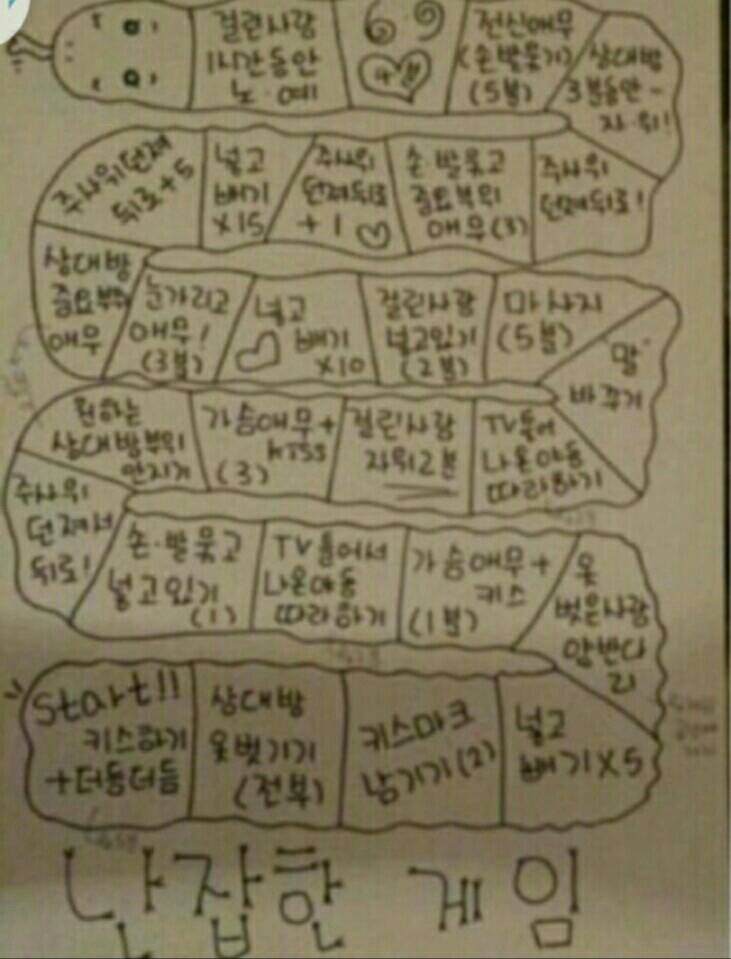 걸린사람
1시간동안
노·예
69
전신애무
(손발묶기)
(5분)
상대방
3분동안-
자·위!
주사위던져
뒤로+5
넣고
빼기
x15
주사위
던져뒤로
+1
손·발묶고
중요부위
애무(3)
주사위
던져뒤로!
상대방
중요부위
애무
눈가리고
애무!
(3분)
넣고
빼기
x10
걸린사람
넣고있기
(2분)
마사지
(5분)
"말"
바꾸기
원하는
상대방부위
만지기
가슴애무+
kiss
(3)
걸린사람
자위2분
TV틀어
나온야동
따라하기
주사위
던져서
뒤로!
손·발묶고
넣고있기
(1)
TV틀어서
나온야동
따라하기
가슴애무+
키스
(1분)
옷
벗은사람
Start!!
키스하기
+더듬더듬
상대방
옷벗기기
(전부)
키스마크
남기기(2)
넣고
빼기x5
난잡한 게임